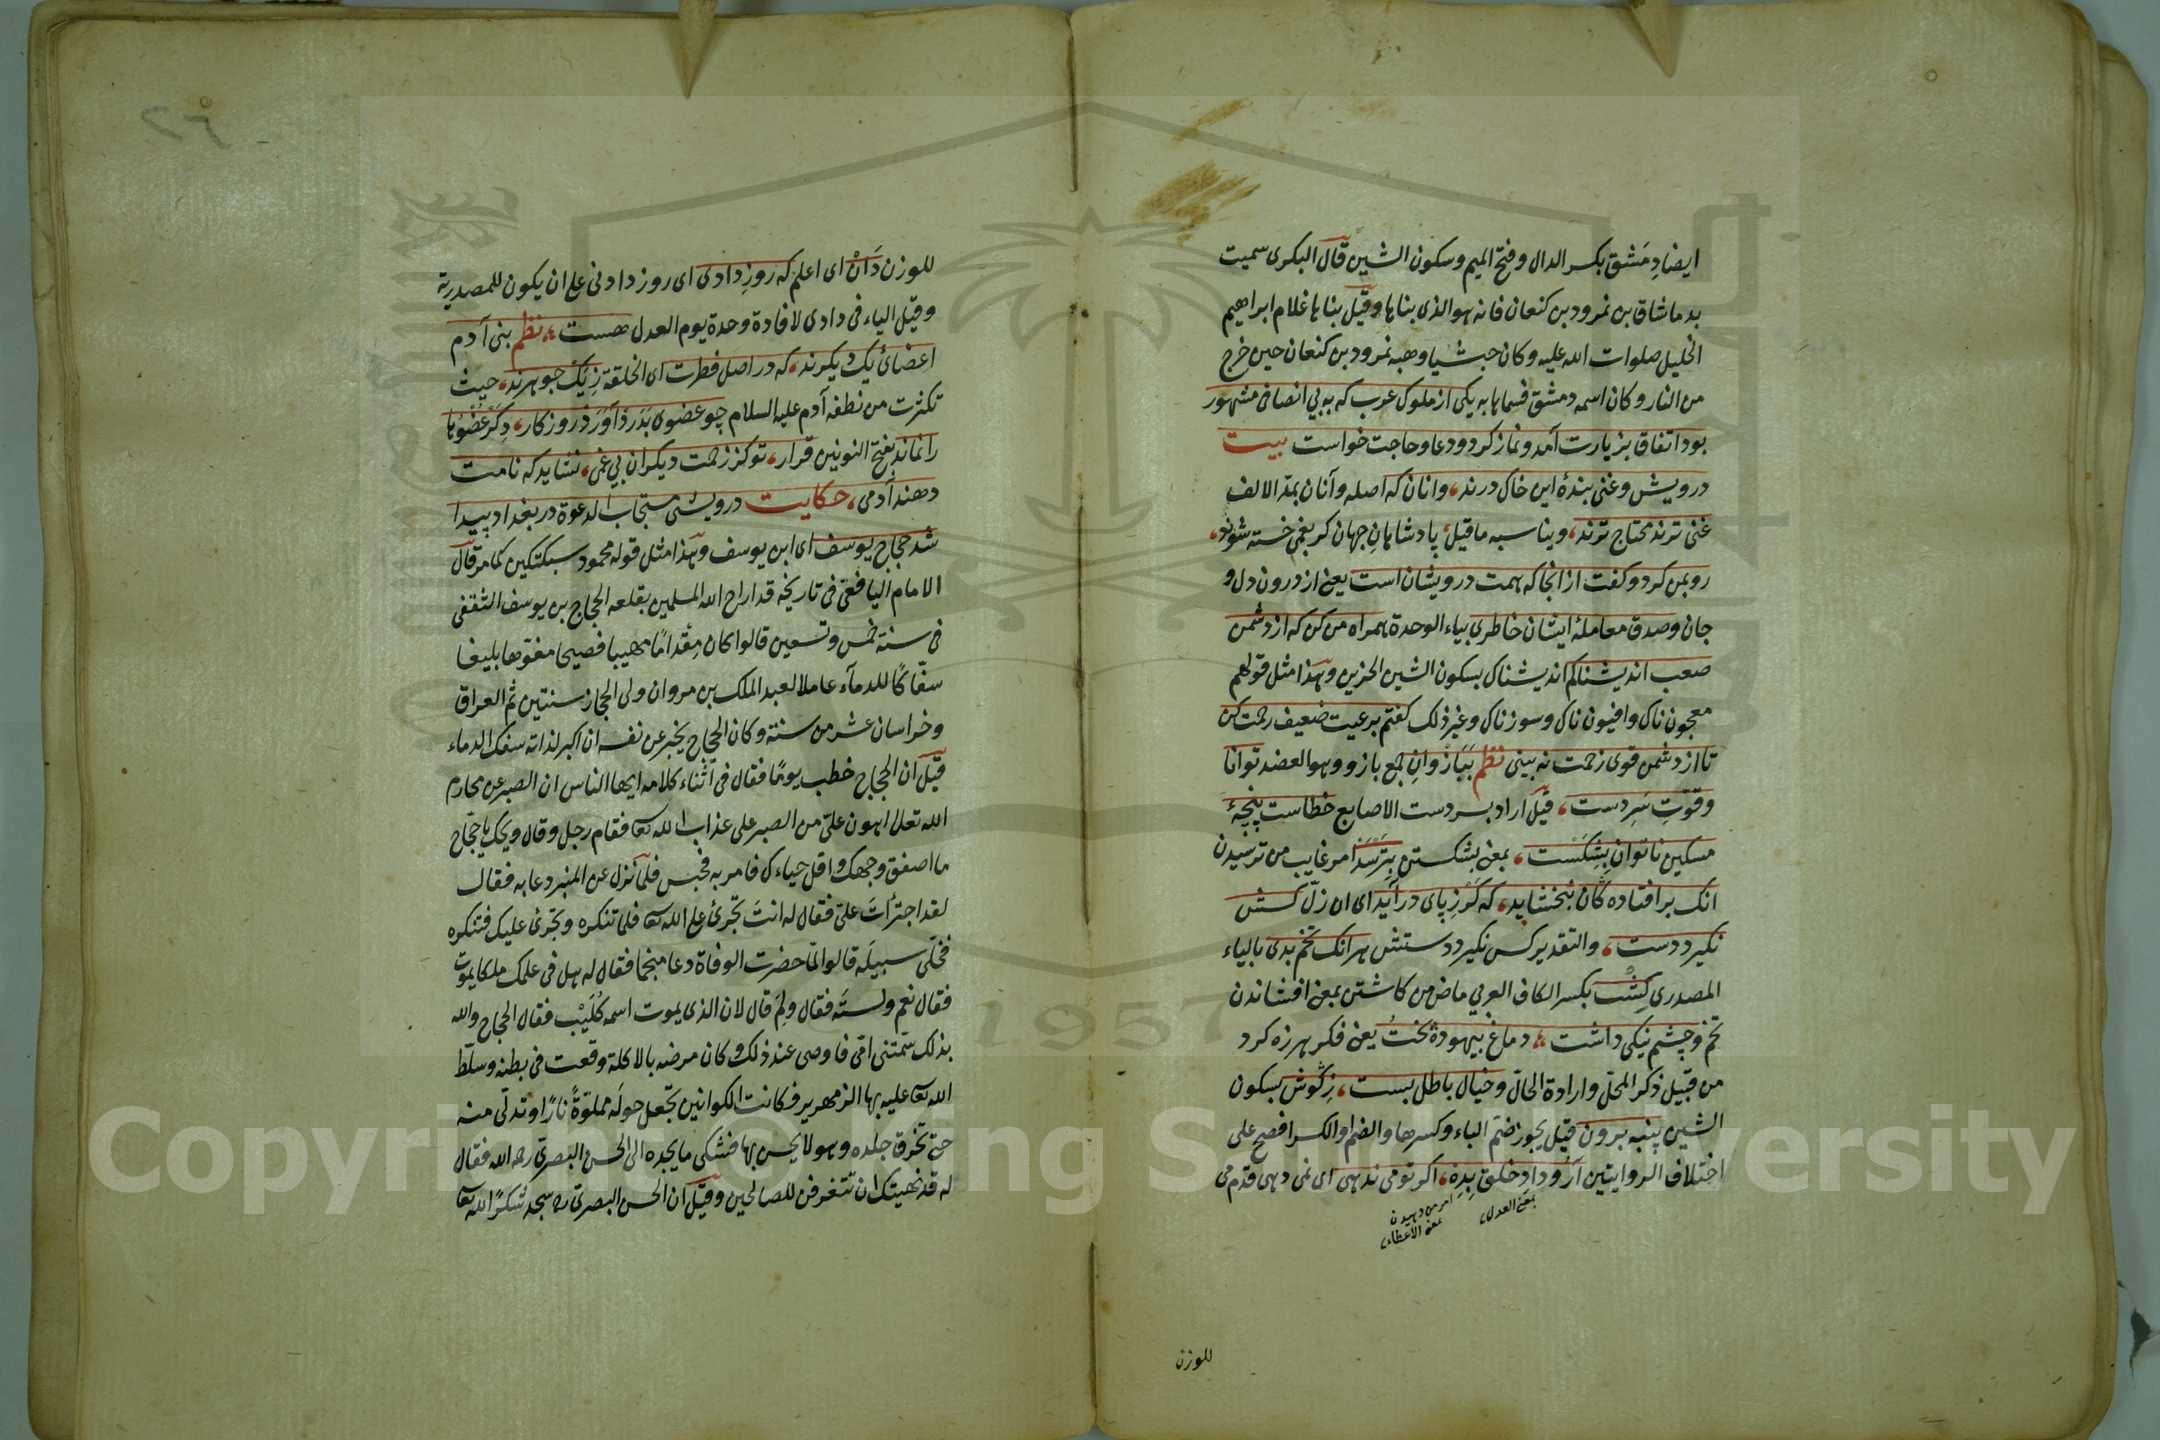 ايضا دِمَشق بكسر الدال وفتح الميم وسكون الشين قال البكرى سميت
بدماشاق بن نمرود بن كنعان فانه هو الذى بناها وقيل بناها غلام ابراهيم
الخليل صلوات الله عليه وكان حبشيا وهبه نمرود بن كنعان حين خرج
من النار وكان اسمه دمشق فسماها به يكى از ملوك عرب كه به بى انصافى مشهور
بود اتفاق بزيارت آمد ونماز كرد ودعا وحاجت خواست بيت
درويش وغنى بندۀ اين خاك درند، وانان كه اصله وآنان بمدّ الالف
غنى ترند محتاج ترند، ويناسبه ما قيل پادشاهان جهان كر بغمى خسته شوند،
رو بمن كرد وكفت ازانجا كه همت درويشان است يعنى از درون دل و
جان وصدق معاملۀ ايشان خاطرى بياء الوحدة همراه من كن كه از دشمن
صعب انديشناكم انديشناك بسكون الشين الحزين وهذا مثل قولهم
معجون ناك وافيون ناك وسوزناك وغير ذلك كفتم بر عيت ضعيف رحمت كن
تا از دشمن قوى زحمت نه بينى نظم ببازوانِ جمع بازو وهو العضد توانا
وقوّتِ سَرِ دست، قيل اراد بسر دست الاصابع خطاست پنجۀ
مسكين ناتوان بشكست، بمعنى بشكستن بترسَد امر غايب من ترسيدن
انك بر افتاده كان نبخشايد، كه كَر زِپاى درآيد اى ان زلّ كسش
نكيرد دست، والتقدير كس نكيرد دستش هر انك تخم بدى بالياء
المصدرى كِشت بكسر الكاف العربي ماض من كاشتن بمعنى افشاندن
تخم وچشم نيكى داشت، دماغ بيهوده پختُ يعنى فكر هرزه كرد
من قبيل ذكر المحلّ وارادة الحالّ وخيال باطل بست، زِكوش بسكون
الشين پنبه برون قيل يجوز ضمّ الباء وكسرها والضم او الكسر افصح على
اختلاف الروايتين آرُ وداد خلق بِدِه، اكر تو مى ندهى اى نمى دهى قدم مى
بمعنى العدل
امر من دهيدن
بمعنى الاعطاء
للوزن
للوزن دَانْ اى اعلم كه روزِ دادى اى روز دادنى على ان يكون للمصدرية
وقيل الياء فى دادى لافادة وحدة يوم العدل هست، نظم بنى آدم
اعضائ يك ديكرند، كه در اصل فطرت اى الخلقة زِيَك جوهرند، حيث
تكثرت من نطفه آدم عليه السلام چو عضوى بَدَرد آوَرَد روزكار، دِكَر عضوها
را نماند بفتح النونين قرار، تو كز زحمت ديكران بى غمى، نشايد كه نامت
دهند آدمى، حكايت درويشى مستجاب الدعوة در بغداد پيدا
شد حجاج يوسف اى ابن يوسف وهذا مثل قوله محمود سبكتكين كما مر قال
الامام اليافعى فى تاريخه قد اراح الله المسلمين بقلعه الحجاج بن يوسف الثقفى
فى سنة خمس وتسعين قالوا كان مِقْدامًا مهيبا فصيحا مفوّها بليغا
سفّاكًا للدمآء عاملا لعبد الملك بن مروان ولى الحجاز سنتين ثم العراق
وخراسان عشرين سنة وكان الحجّاج يخبر عن نفسه ان اكبر لذاته سفك الدماء
قيل ان الحجاج خطب يومًا فقال فى اثناء كلامه ايها الناس ان الصبر عن محارم
الله تعالى اهون علىّ من الصبر على عذاب الله تعا فقام رجل وقال ويحك يا حجّاج
ما اصفق وجهك واقل حياءك فامر به فحبس فلمّا نزل عن المنبر دعا به فقال
لقد اجترأت علىّ فقال له انتَ تجرئ على الله تعا فلما تنكره وتجرئ عليك فتنكره
فخلّى سبيله قالوا لمّا حضرت الوفاة دعا منجما فقال له هل فى علمك ملكا يموت
فقال نعم ولستَه فقال ولِمَ قال لان الذى يموت اسمه كُلَيْب فقال الحجاج والله
بذلك سمّتنى امّى فاوصى عند ذلك وكان مرضه بالاكلة وقعت فى بطنه وسلّط
الله تعا عليه بها الزمهرير فكانت الكوانين تجعل حوله مملوّةً نارًا وتدلى منه
حتى تحرق جلده وهو لا يحس بها فشكى ما يجده الى الحسن البصرى ره الله فقال
له قد نهيتك ان تتعرض للصالحين وقيل ان الحسن البصرى ره سجد شكرًا لله تعا
Copyright © King Saud University
1957